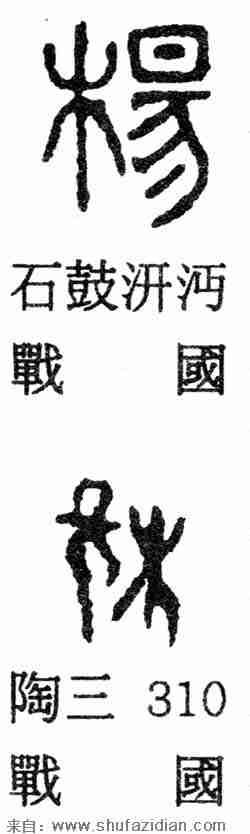 楊
石鼓汧沔
戰國
陶三 310
戰國
来自：www.shufazidian.com